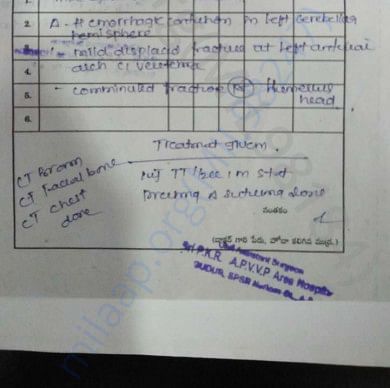 1.
2. Δ - Hemorrhagic contusion in left cerebellar
hemisphere
3. - mild displaced fracture at left anterior
4. arch C1 vertebrae
5. - comminuted fracture (Rt) Humerus
head
6.
Treatment given
CT Brain
CT Facial bone
CT Chest
done
Inj TT 1/2cc IM stat
Dressing & suturing done
సంతకం
(డాక్టర్ గారి పేరు, హోదా కలిగిన ముద్ర)
Civil Assistant Surgeon
A.P.V.V.P Area Hospital
GUDUR, SPSR Nellore Dt., A.P.
milaap.org